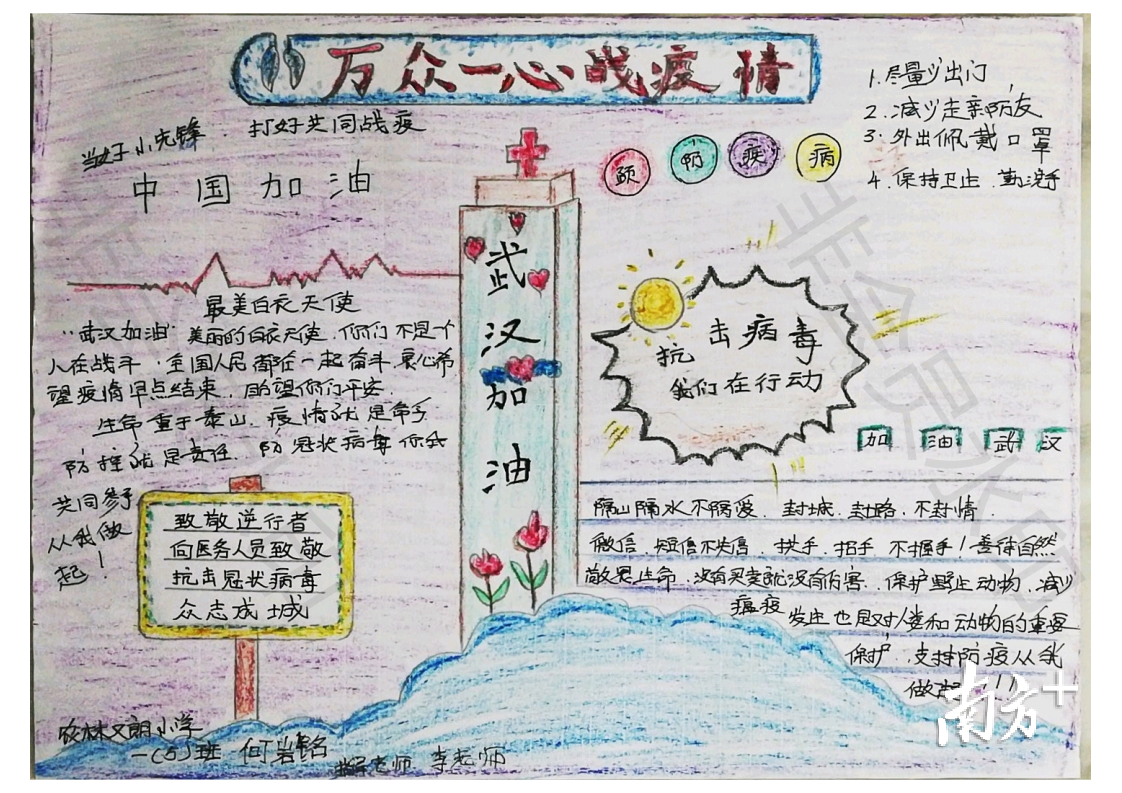 万众一心战疫情
当好小先锋 打好共同战疫
中国加油
1.尽量少出门
2.减少走亲防友
3.外出佩戴口罩
4.保持卫生 勤洗手
预防疾病
最美白衣天使
"武汉加油"美丽的白衣天使.你们不是个
人在战斗.全国人民都在一起奋斗.衷心希
望疫情早点结束.盼望你们平安
生命重于泰山.疫情就是命令
防控就是责任.防冠状病毒你我
共同参予
从我做
起!
致敬逆行者
向医务人员致敬
抗击冠状病毒
众志成城
武汉加油
抗击病毒
我们在行动
加油武汉
隔山隔水不隔爱.封城.封路.不封情
微信.短信不失信.拱手.招手.不握手!善待自然
敬畏生命.没有买卖就没有伤害.保护野生动物.减少
瘟疫发生也是对人类和动物的重要
保护.支持防疫从我
做起
农林文朗小学
一(5)班 何岩铭
李老师
南方+
非会员水印